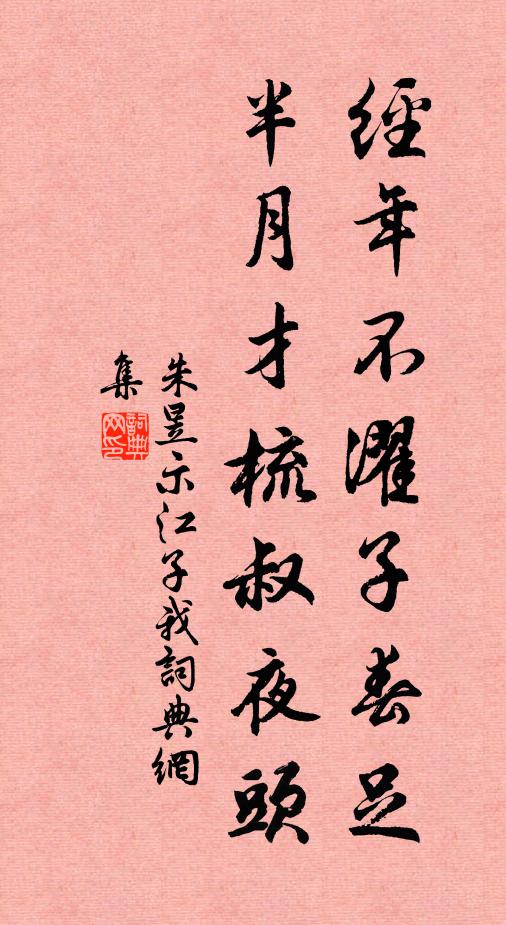 經年不濯子春足
半月才梳叔夜頭
朱昱示江子我詞典網
集
詞典网印